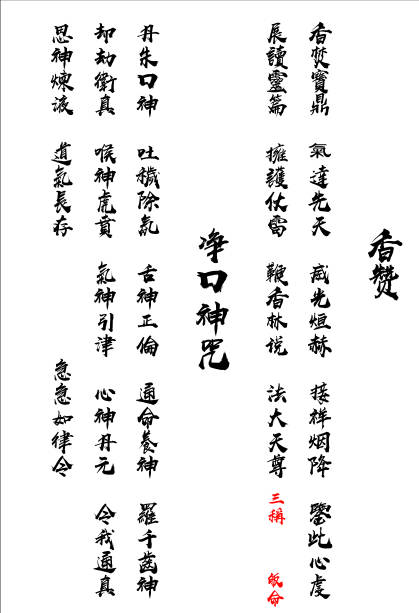 香赞
香焚寶鼎 氣達先天 威光烜赫 接祥烟降 鑒此心虔
展讀靈篇 擁護仗雷 鞭香林説 法大天尊 三稱 皈命
净口神咒
丹朱口神 吐穢除氛 舌神正倫 通命養神 羅千齒神
却劫衛真 喉神虎賁 氣神引津 心神丹元 令我通真
思神煉液 道氣長存 急急如律令